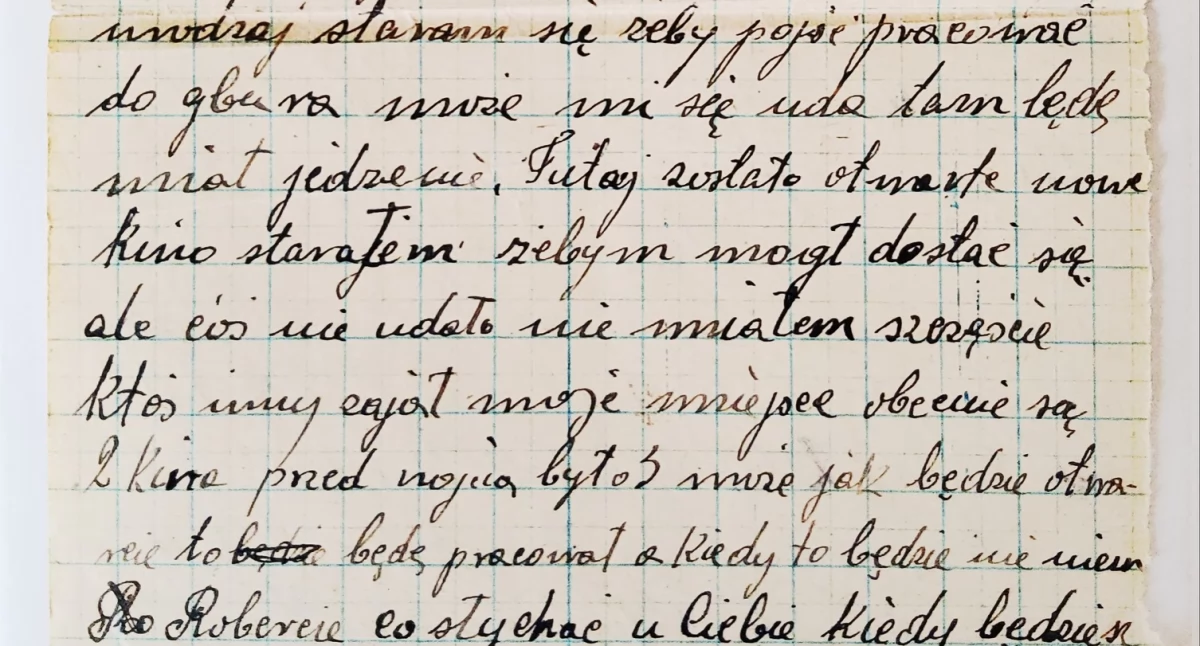 staram się żeby pojść pracować
do gbura może mi się uda tam będę
miał jedzenie. Tutaj zostało otwarte nowe
kino starałem żebym mogł dostać się
ale coś nie udało nie miałem szczęście
ktoś inny zajął moje miejsce obecnie są
2 kina przed wojną było 3 może jak będzie otwa-
rcie to będę pracował a kiedy to będzie nie wiem
Robercie co słychać u Ciebie kiedy będziesz